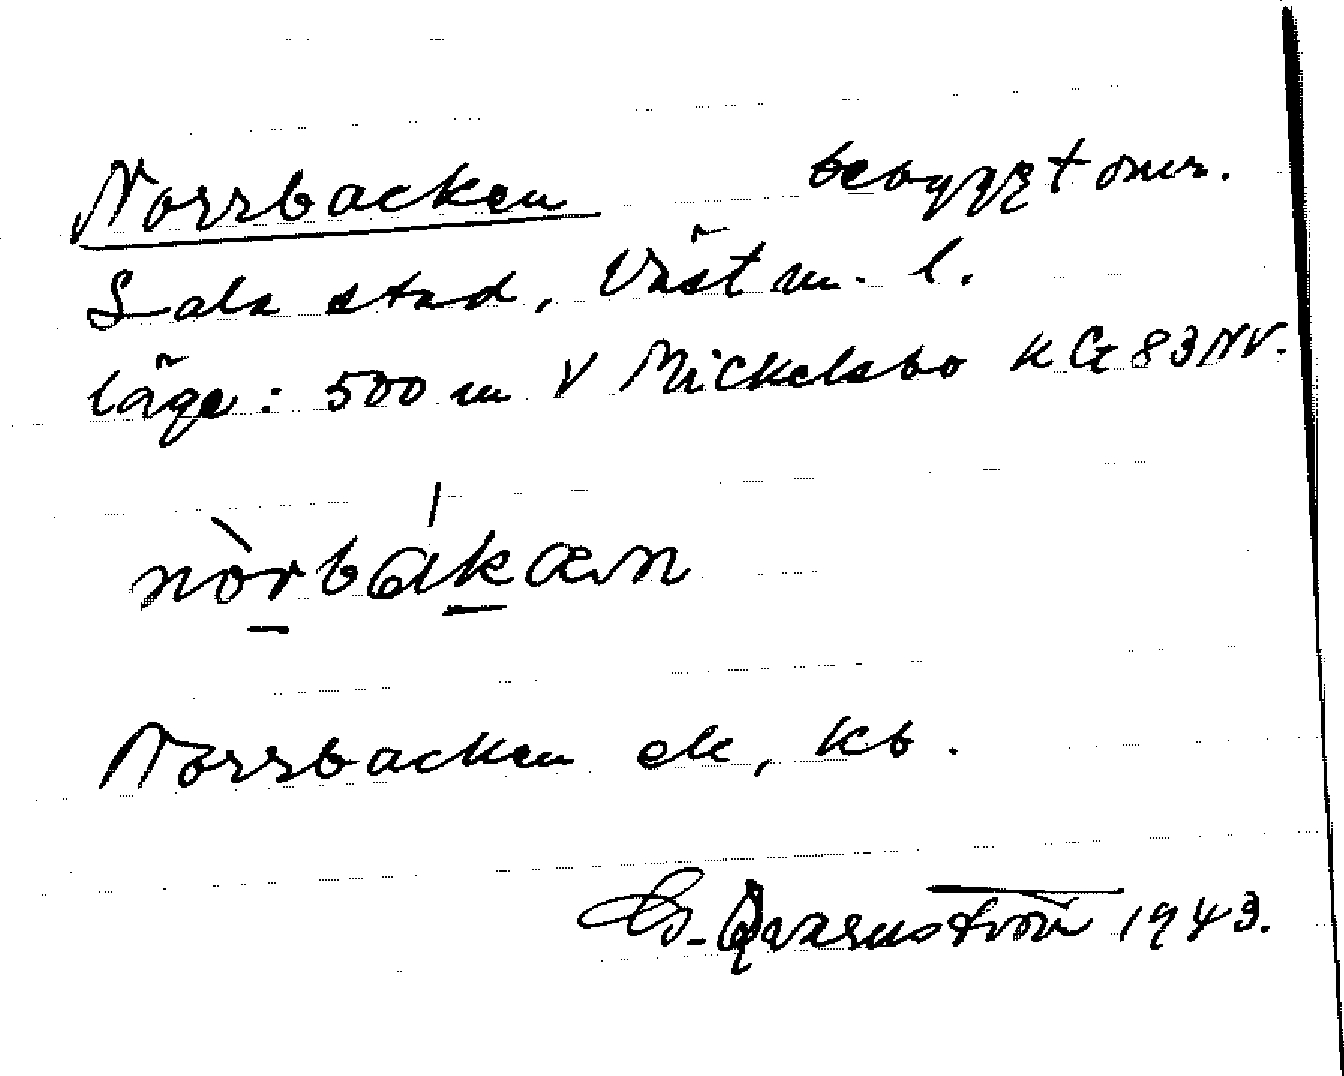 Norrbacken bebyggt omr.
Sala stad, Västm. l.
läge: 500 m V Mickelsbo K G 83 NV.
nòrbákæn
Norrbacken ek, kb.
G. Qvarnström 1943.